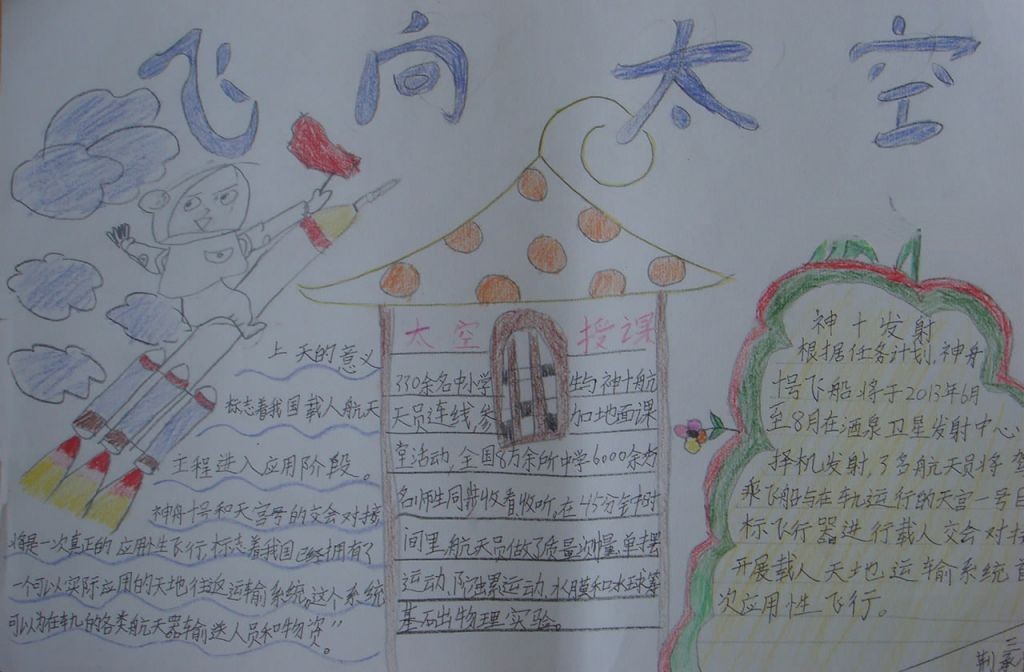 飞向太空
上天的意义
标志着我国载人航天
工程进入应用阶段。
神舟十号和天宫号的交会对接
将是一次真正的应用性飞行,标志着我国已经拥有了
一个可以实际应用的天地往返运输系统,这个系统
可以为在轨的各类航天器输送人员和物资”。
太空授课
330余名中小学生与神十航
天员连线参加地面课
堂活动,全国8万余所中学6000余万
名师生同步收看收听。在45分钟时
间里,航天员做了质量测量、单摆
运动、陀螺运动、水膜和水球等
基础物理实验。
神十发射
根据任务计划,神舟
十号飞船将于2013年6月
至8月在酒泉卫星发射中心
择机发射,3名航天员将驾
乘飞船与在轨运行的天宫一号目
标飞行器进行载人交会对接
开展载人天地运输系统首
次应用性飞行。